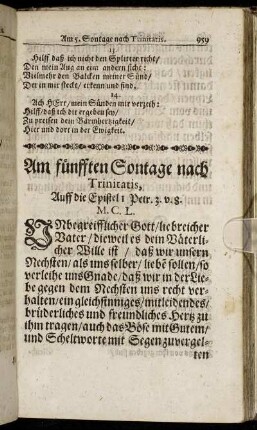 Am 5. Sontage nach Trinitatis. 959
13
Hilff daß ich nicht den Splitter richt/
Den mein Aug an eim andern sicht:
Vielmehr den Balcken meiner Sünd/
Der in mir steckt/ erkenn und find.
14.
Ach HErr/ mein Sünden mir verzeih:
Hilff/ daß ich dir ergeben sey/
Zu preisen dein Barmhertzigkeit/
Hier und dort in der Ewigkeit.
Am fünfften Sontage nach
Trinitatis,
Auff die Epistel 1 Petr. 3. v. 8.
M. C. L.
UNbegreifflicher Gott/ liebreicher
Vater/ dieweil es dein Väterli-
cher Wille ist/ daß wir unsern
Nechsten/ als uns selber/ liebē sollen/ so
verleihe uns Gnade/ daß wir in der Lie-
be gegen dem Nechsten uns recht ver-
halten/ ein gleichsinniges/ mitleidendes/
brüderliches und freundliches Hertz zu
ihm tragen/ auch das Böse mit Gutem/
und Scheltworte mit Segen zu vergel-
ten